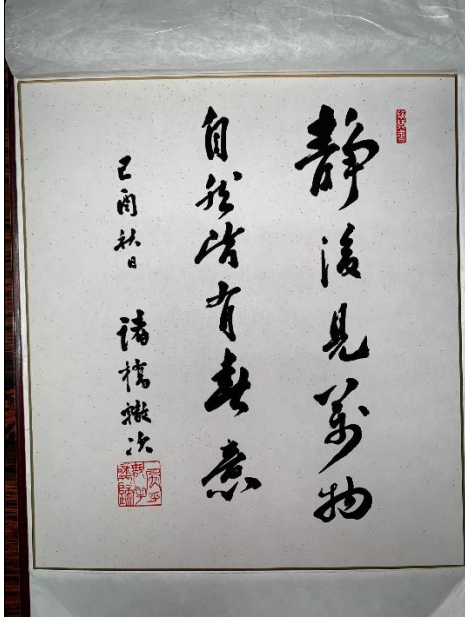 靜後見萬物
自然皆有春意
己酉秋日 諸橋轍次